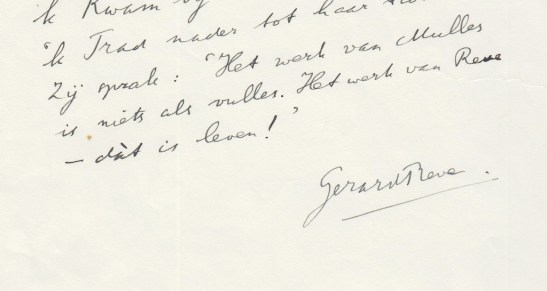 ik Kwam
ik Trad nader tot haar
Zij sprak: 'Het werk van Mulles
is niets als vulles. Het werk van Reve
— dàt is leven!'
Gerard Reve.